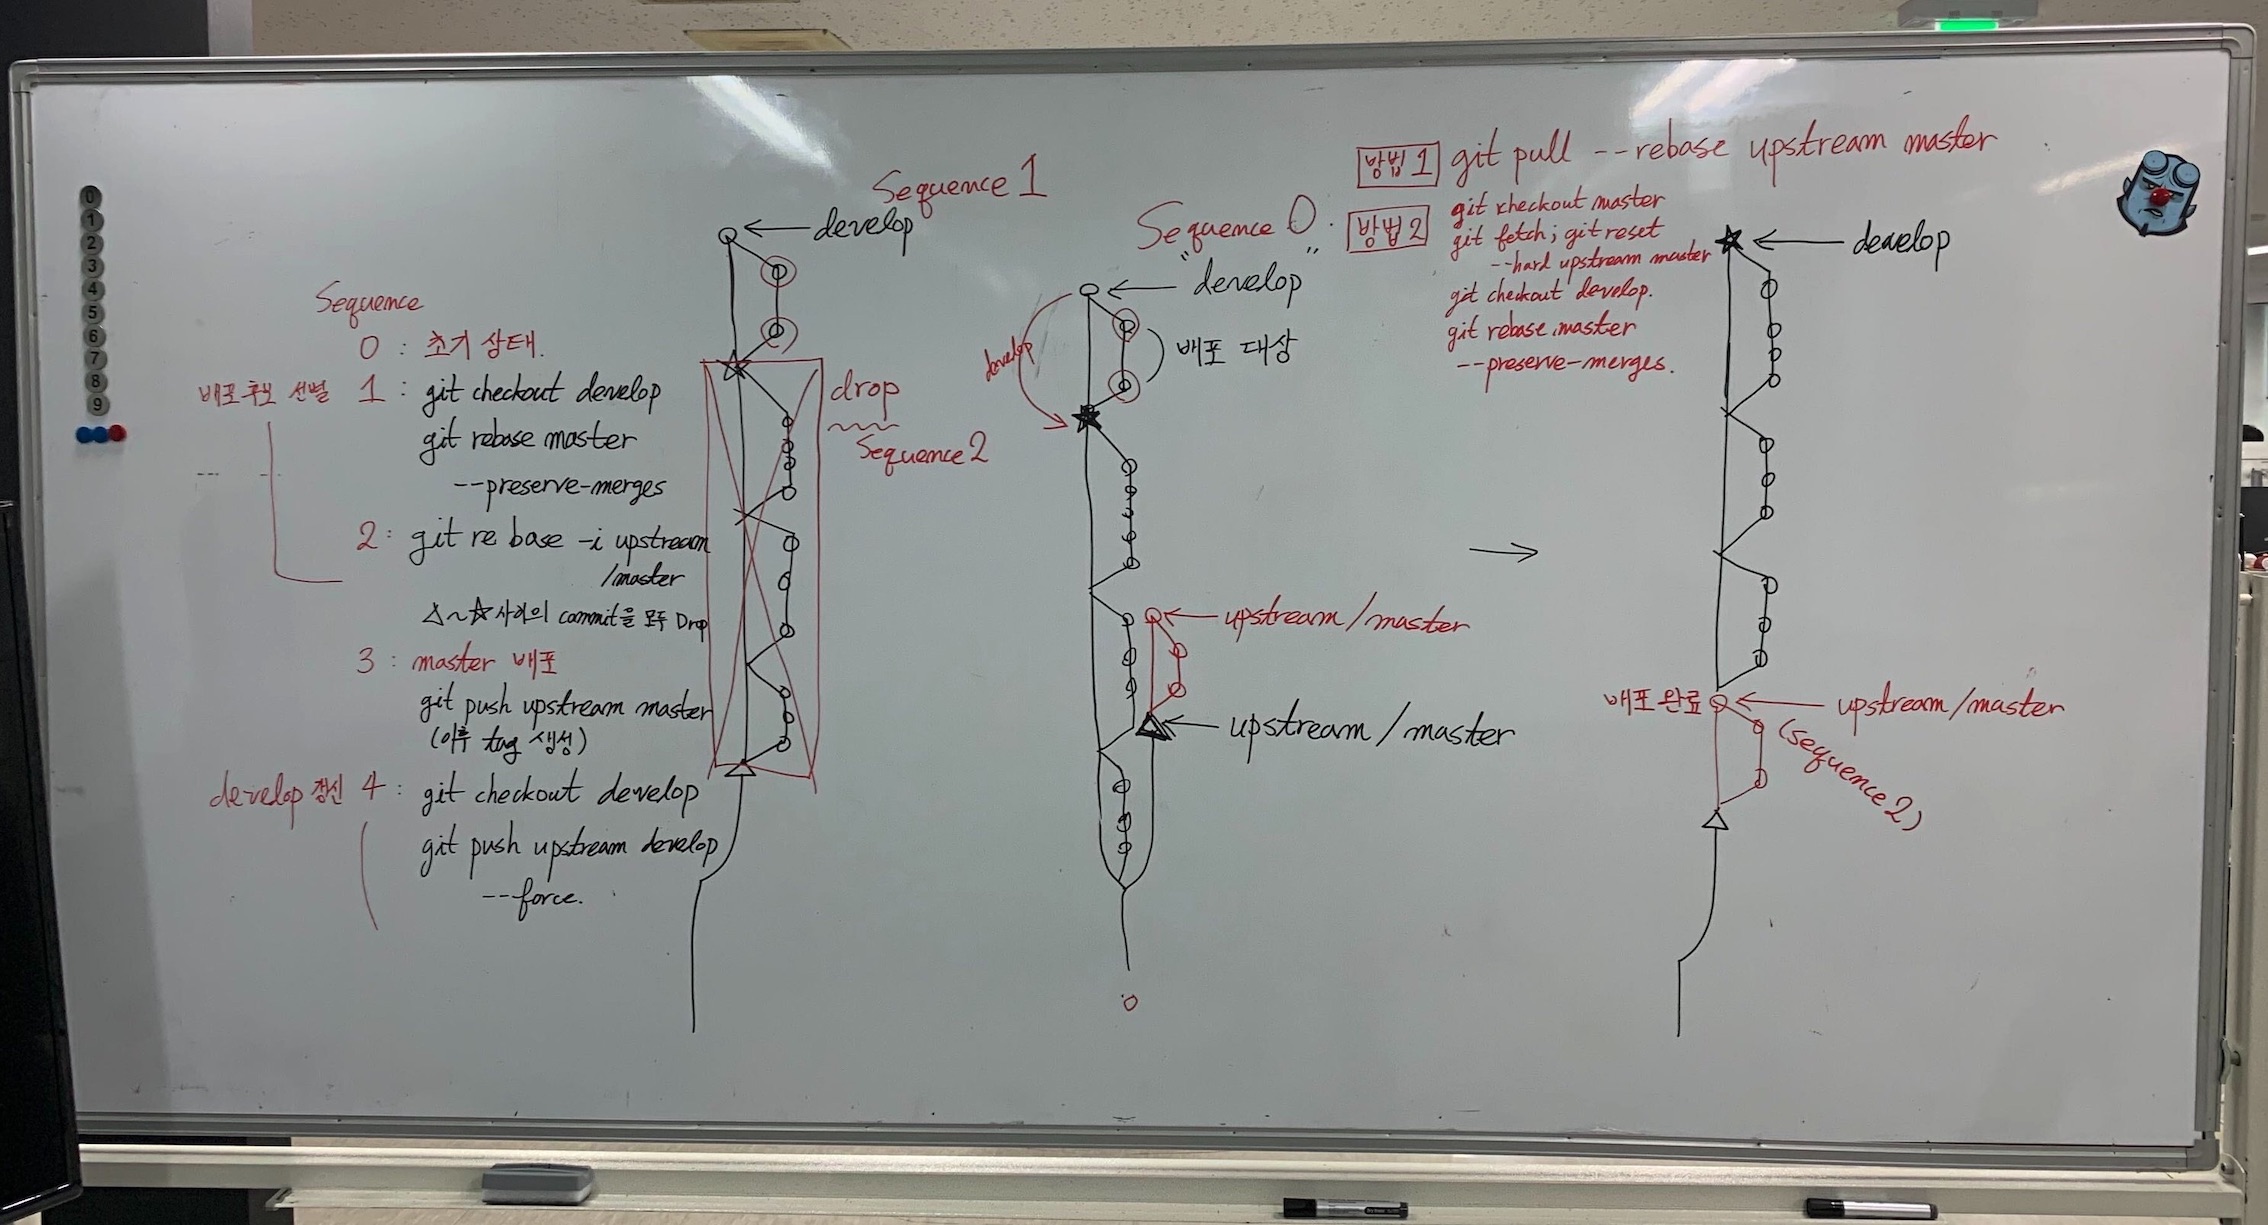 0
1
2
3
4
5
6
7
8
9
Sequence
0 : 초기 상태.
배포 후보 선별 1 : git checkout develop
git rebase master
--preserve-merges
2 : git rebase -i upstream
/master
△~☆사이의 commit을 모두 Drop
3 : master 배포
git push upstream master
(이후 tag 생성)
develop 갱신 4 : git checkout develop
git push upstream develop
--force.
Sequence 1
develop
drop
Sequence 2
Sequence 0.
"develop"
develop
배포 대상
upstream/master
upstream/master
방법 1 git pull --rebase upstream master
방법 2 git checkout master
git fetch; git reset
--hard upstream master
git checkout develop.
git rebase master
--preserve-merges.
develop
배포 완료
upstream/master
(sequence 2)